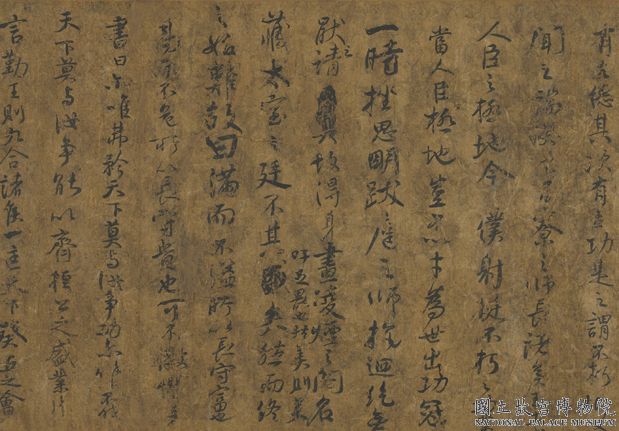 有立德其次有立功是之謂不朽
聞之端揆者百寮之師長諸侯王
人臣之極地今僕射挺不朽之
當人臣極地豈不以才為世出功冠
一時挫思明跋扈之師抗迴紇無
厭之請故得身畫凌煙之閣名
藏太室之廷吁足畏也然美則美
矣然而終
之始難故曰滿而不溢所以長守富也
高而不危所以長守貴也可不儆懼乎
書曰爾唯弗矜天下莫與汝爭功爾唯不伐
天下莫與汝爭能以齊桓公之盛業片
言勤王則九合諸侯一匡天下葵丘之會
國立故宮博物院
NATIONAL PALACE MUSEUM